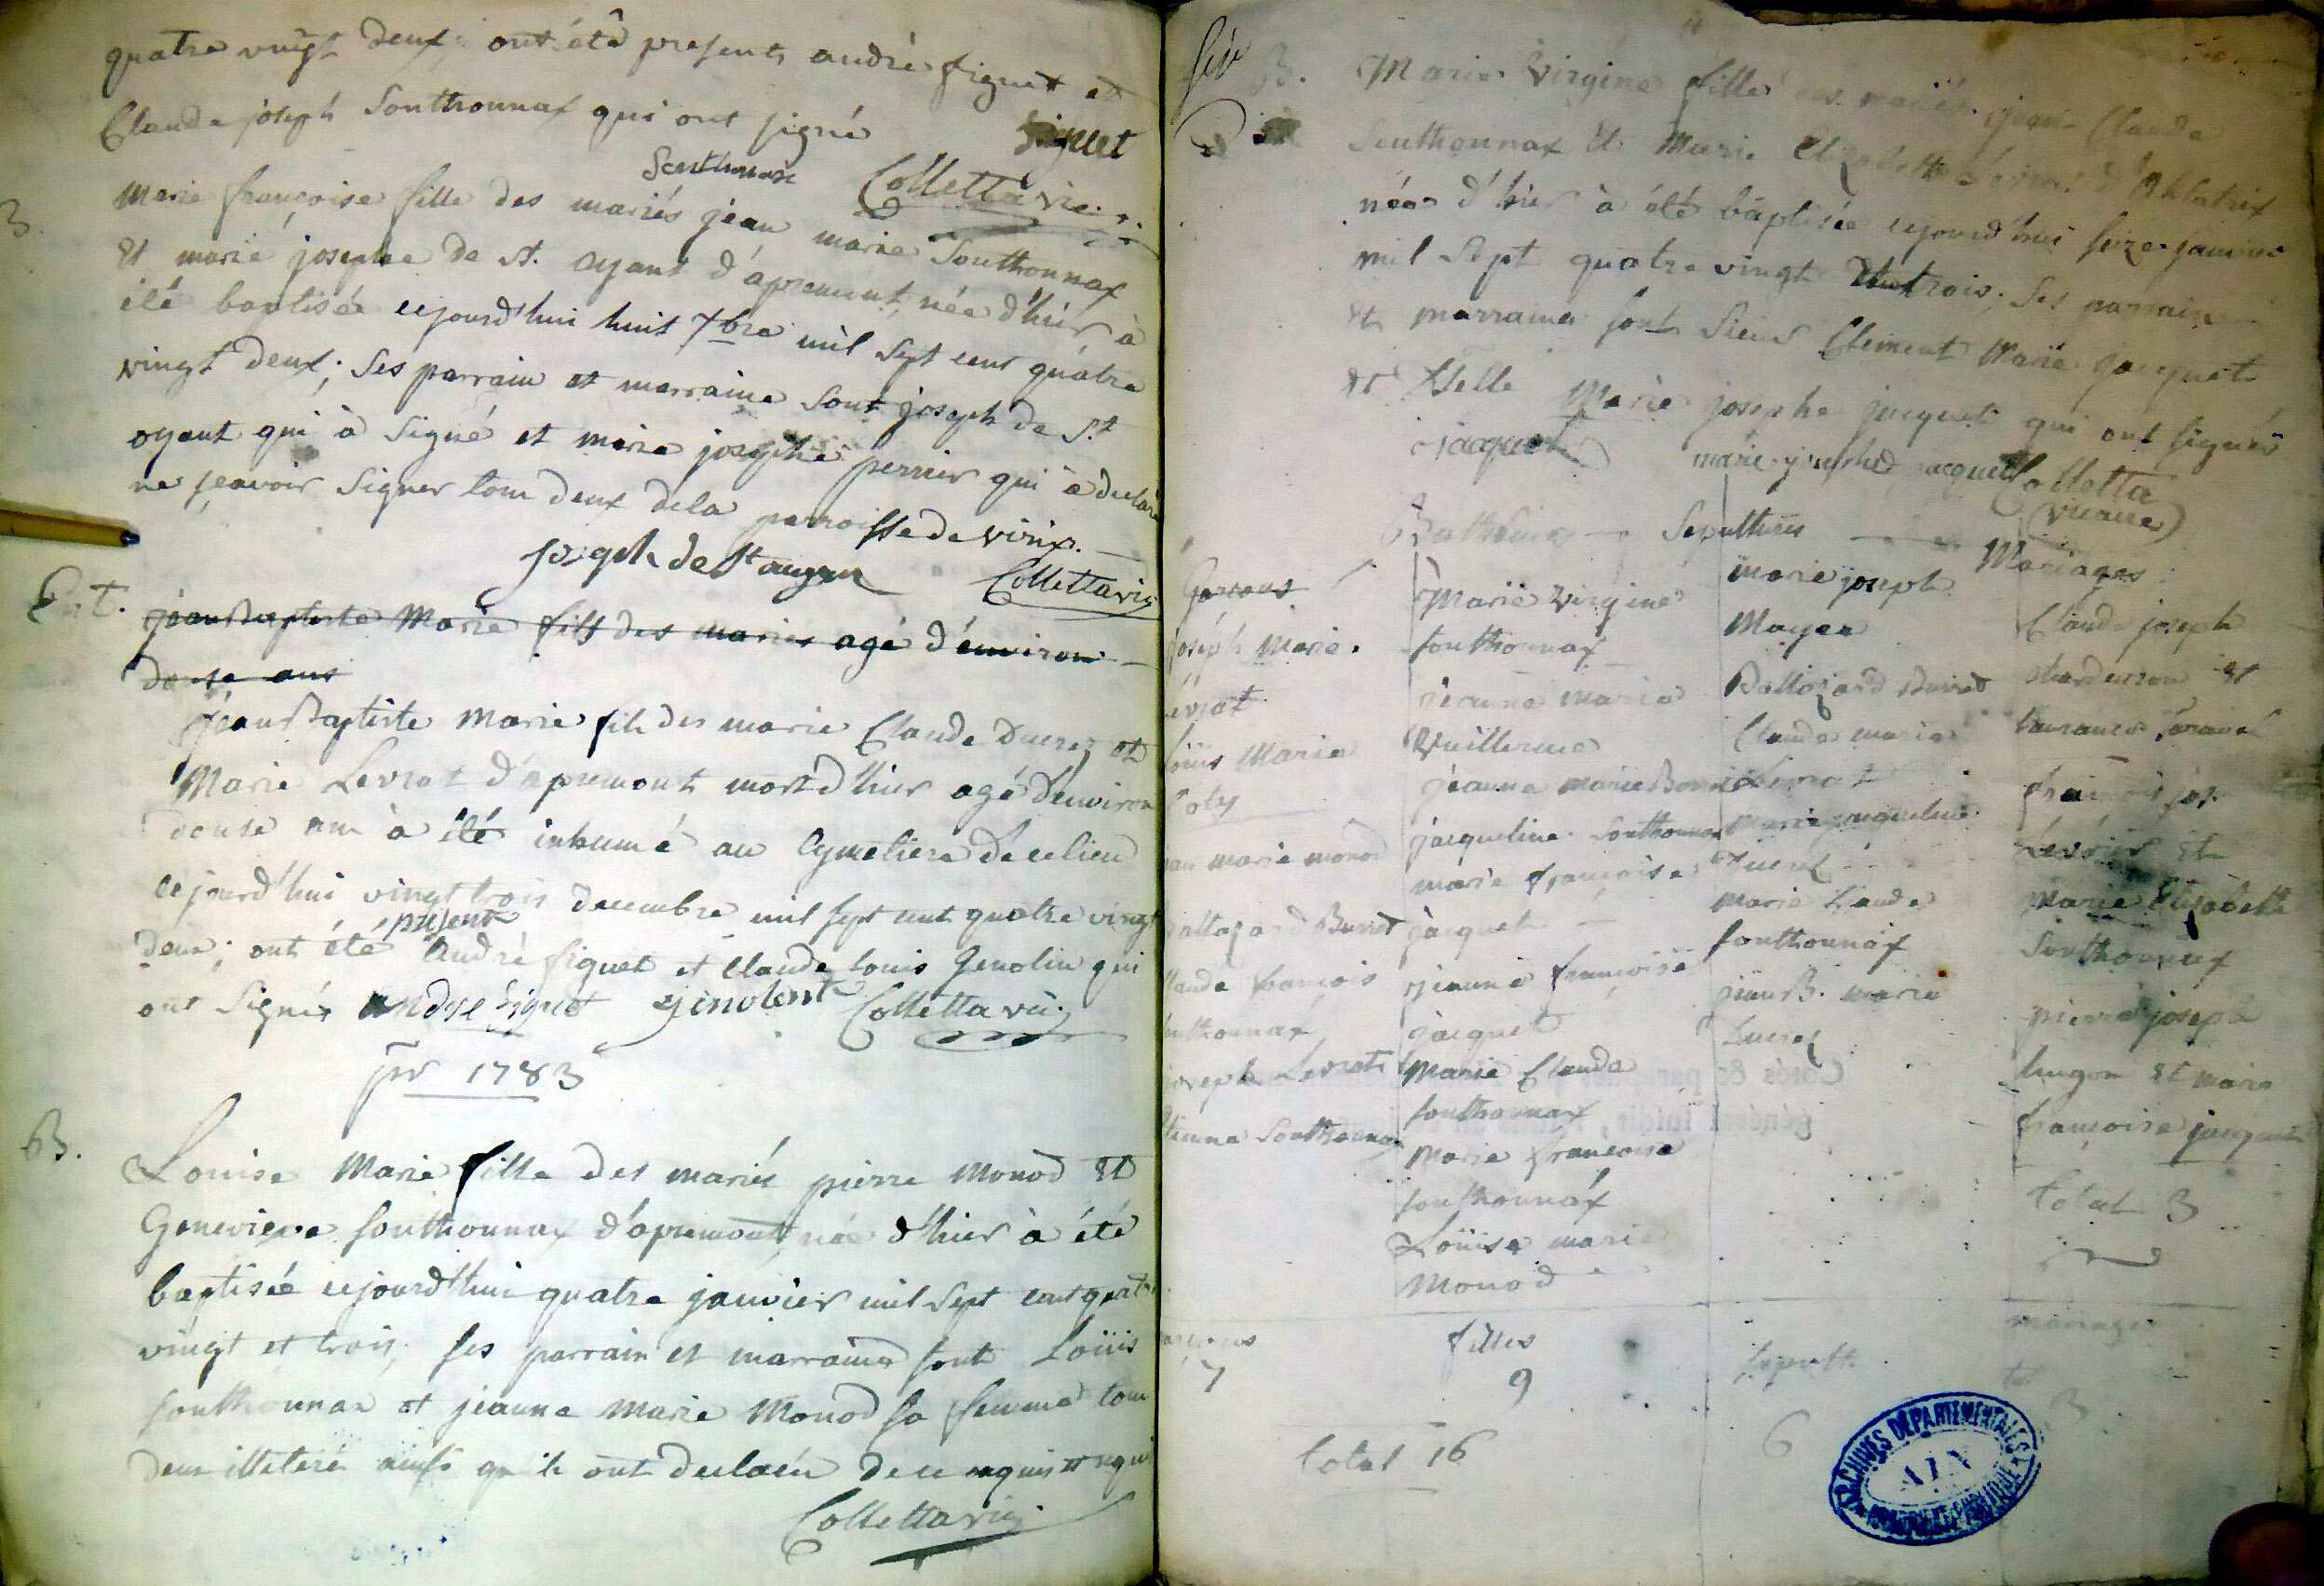 quatre vingt deux; ont été presents andré figuet et
Claude joseph Southonnax qui ont signé
figuet
Southonax Colletta vic.
B.
Marie françoise fille des mariés jean marie Southonnax
Et marie josephe de St. oyant d'apremont, née d'hier à
été baptisée cejourd'hui huit 7bre mil sept cent quatre
vingt deux; ses parrain et marraine sont joseph de St
oyant qui à signé et marie josephe perrier qui à declaré
ne sçavoir signer tous deux dela parroisse de virix.
joseph de St
Colletta vic
Ent.
jean Baptiste Marie fils des mariés agé d'environ
douse ans
jean Baptiste Marie fils des marié Claude Ducrez et
Marie Levrat d'apremont mort d'hier agé d'environ
douse ans à été inhumé au Cymetiere de ce lieu
cejourd'hui vingt trois decembre mil sept cent quatre vingt
present
deux; ont été André figuet et Claude Louis Genolin qui
ont signés andre figuet genolent Colletta vic
1783
B.
Louise Marie fille des mariés pierre Monod Et
Genevieve southonnax d'apremont, née d'hier à été
baptisée cejourd'hui quatre janvier mil sept cent quatre
vingt et trois; ses parrain et marraine sont Loüis
southonnax et jeanne Marie Monod sa femme tous
deux illeteré ainsi qu'ils ont declaré de ce enquis et requis
Colletta vic
B. Marie Virgine fille des mariés jean Claude
Southonnax Et Marie Elizabeth Levrat d'
née d'hier à été baptisée cejourd'hui seize janvier
mil sept quatre vingt trois; ses parrain
et marraine sont Sieur Clement Marie jacquet
et Delle Marie josephe jacquet qui ont signés
jacquet marie josephe jacquet Colletta
vicaire
Sepultures Mariages
Garcons
joseph Marie
Levrat
Loüis Marie
marie monod
Baltazard Burret
Claude françois
southonnax
joseph Levrat
Southonnax
Marie Virgine
southonnax
jeanne marie
Vuillerme
jeanne marie
jacqueline Southonnax
marie françoise
jacquet
jeanne françoise
jacquet
Marie Claude
southonnax
Marie françoise
southonnax
Loüise marie
Monod
marie joseph
Mayer
Baltazard Burret
Claude marie
Levrat
Marie jacqueline
Ducret
marie Claude
southonnax
jean B. marie
Ducrez
Claude joseph
et
françois jos.
Et
Marie Elisabeth
Southonnax
pierre joseph
hugon et marie
françoise jacquet
total 3
7
filles
9
sepult.
6
mariages
3
total 16
ARCHIVES DÉPARTEMENTALES
AIN